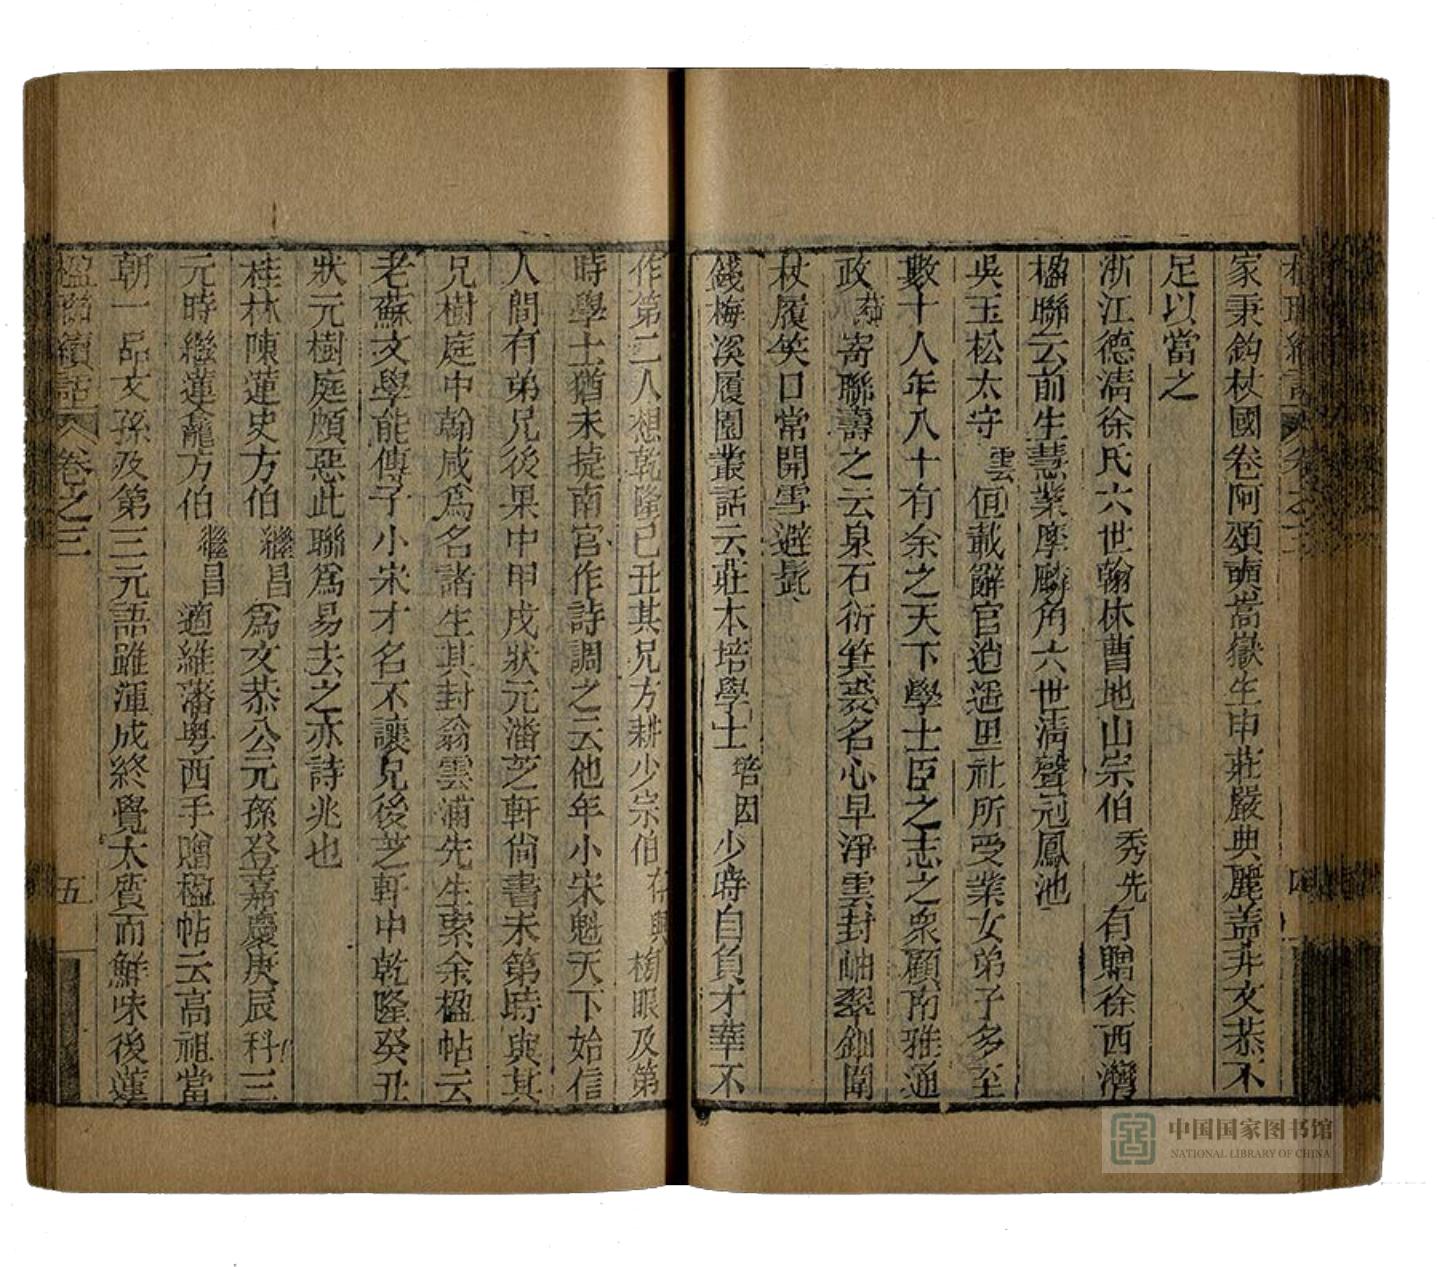 家秉鈞杖國卷阿頌輿嵩嶽生申莊嚴典麗蓋非文恭不
足以當之
浙江德淸徐氏六世翰林曹地山宗伯秀先有贈徐西灣
楹聯云前生慧業摩麟角六世淸聲冠鳳池
吳玉松太守雲恆蕺辭官逍遥里社所受業女弟子多至
數十人年八十有余之天下學士臣之志之衆顧南雅通
政蒓寄聯壽之云泉石衍箕裘名心早淨雲封岫翠鈿闈
杖履笑口常開雪避髭
錢梅溪履園叢話云莊本培學士培因少時自負才華不
作第二人想乾隆己丑其兄方耕少宗伯存與榜眼及第
時學士猶未捷南宮作詩調之云他年小宋魁天下始信
人間有弟兄後果中甲戌狀元潘芝軒尙書未第時與其
兄樹庭中翰咸爲名諸生其封翁雲浦先生索余楹帖云
老蘇文學能傳子小宋才名不讓兄後芝軒中乾隆癸丑
狀元樹庭頗惡此聯爲易去之亦詩兆也
桂林陳蓮史方伯繼昌爲文恭公元孫登嘉慶庚辰科三
元時繼蓮龕方伯繼昌適維藩粤西手贈楹帖云高祖當
朝一品文孫及第三元語雖渾成終覺太質而鮮味後蓮
楹聯續話 卷之三 五
中国国家图书馆
NATIONAL LIBRARY OF CHINA